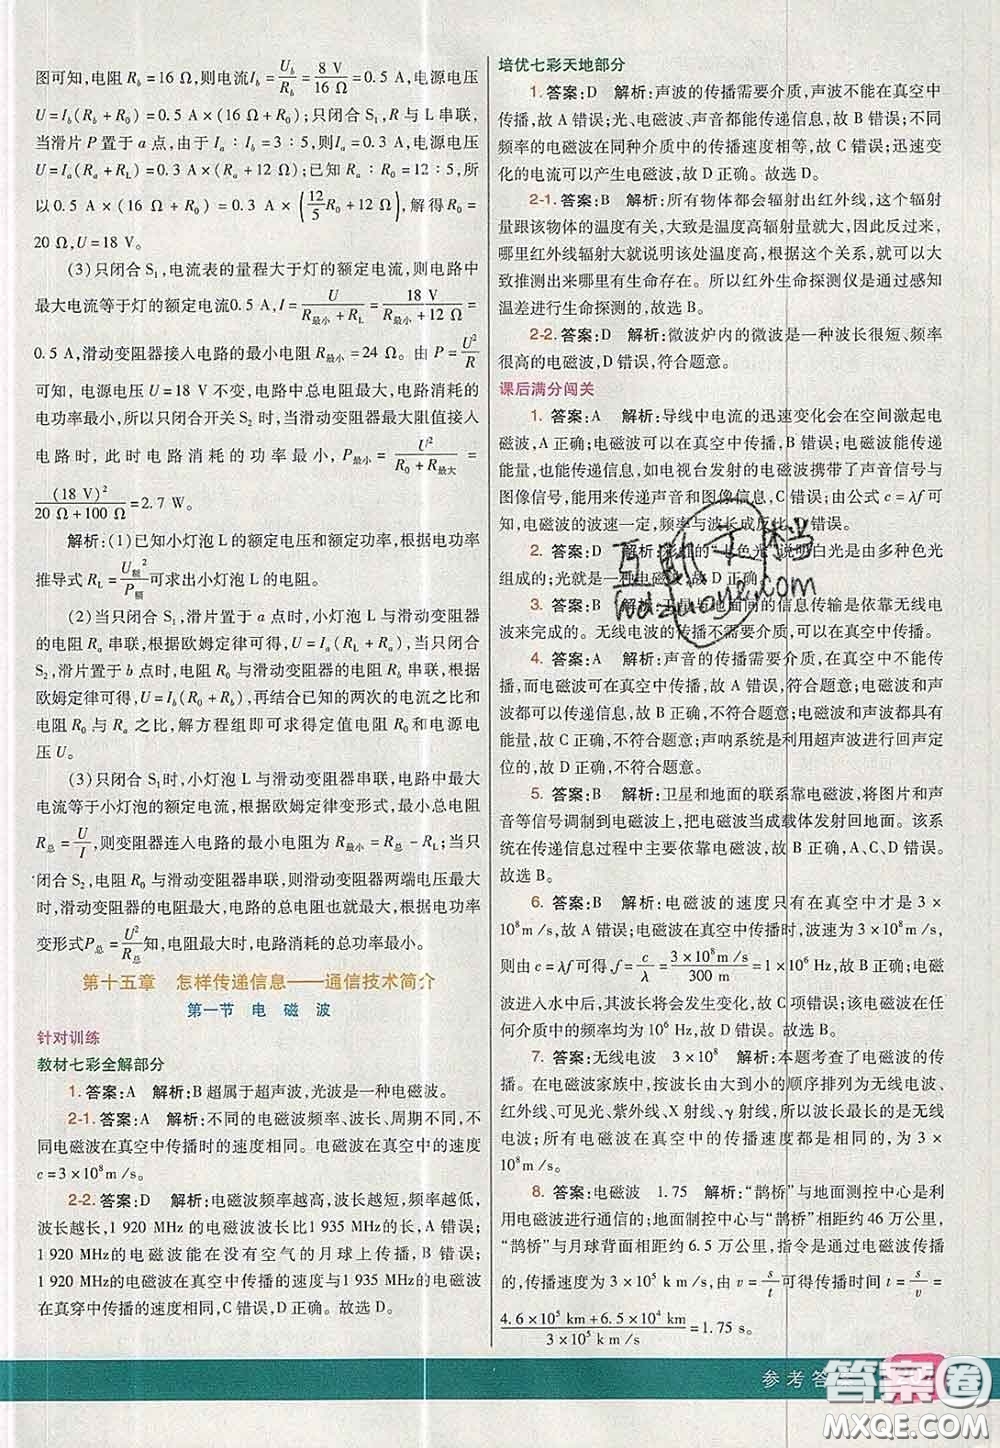 图可知,电阻 R_b=16 Ω,则电流I_b=U_b/R_b=8 V/16 Ω=0.5 A,电源电压
U=I_b(R_b+R_0)=0.5 A×(16 Ω+R_0);只闭合 S₁,R与L串联,
当滑片 P 置于 a 点,由于 I_a∶I_b=3∶5,则I_a=0.3 A,电源电压
U=I_a(R_a+R_L)=0.3 A×(R_a+12 Ω);已知R_a=12/5 R_0,所
以0.5 A×(16 Ω+R_0)=0.3 A×(12/5 R_0+12 Ω),解得R_0=
20 Ω,U=18 V。
(3)只闭合 S₁,电流表的量程大于灯的额定电流,则电路中
最大电流等于灯的额定电流0.5 A,I=U/(R最小+R_L)=18 V/(R最小+12 Ω)=
0.5 A,滑动变阻器接入电路的最小电阻 R最小=24 Ω。由 P=U²/R
可知,电源电压 U=18 V 不变,电路中总电阻最大,电路消耗的
电功率最小,所以只闭合开关 S₂ 时,当滑动变阻器最大值接入
电路时,此时电路消耗的功率最小,P最小=U²/(R_0+R最大)=
(18 V)²/(20 Ω+100 Ω)=2.7 W。
解析:(1)已知小灯泡 L 的额定电压和额定功率,根据功率
推导式 R_L=U额²/P额可求出小灯泡 L 的电阻。
(2)当只闭合 S₁,滑片置于 a 点时,小灯泡 L 与滑动变阻器
的电阻 R_a 串联,根据欧姆定律可得,U=I_a(R_a+R_L);当只闭合
S₂,滑片置于 b 点时,电阻 R_0 与滑动变阻器的电阻 R_b 串联,根据
欧姆定律可得,U=I_b(R_0+R_b),再结合已知的两次的电流之比和
电阻 R_0 与 R_a 之比,解方程组即可求得定值电阻 R_0 和电源电
压 U。
(3)只闭合 S₁时,小灯泡 L 与滑动变阻器串联,电路中最大
电流等于小灯泡的额定电流,根据欧姆定律可求得电路中总电阻
R总=U/I,则变阻器连入电路的最小电阻为R最小=R总-R_L;当只
闭合 S₂,定值电阻 R_0 与滑动变阻器串联,滑动变阻器两端电压达
到最大值时,滑动变阻器的电阻最大,电路的总电阻最大,根据功率
变形式P总=U²/R总知,电阻最大时,电路消耗的总功率最小。
第十五章 怎样传递信息——通信技术简介
第一节 电 磁 波
针对训练
教材七彩全解部分
1. 答案:A 解析:B 超属于超声波,光波是一种电磁波。
2-1. 答案:A 解析:不同的电磁波频率、波长、周期不同,不
同电磁波在真空中传播时的速度相同。电磁波在真空中的速度
c=3×10⁸ m/s。
2-2. 答案:D 解析:电磁波频率越高,波长越短,频率越低,
波长越长,1 920 MHz 的电磁波波长比 1 935 MHz 的长,A 错误;
1 920 MHz 的电磁波能在没有空气的月球上传播,B 错误;
1 920 MHz 的电磁波在真空中传播的速度与 1 935 MHz 的电磁波
在真穿中传播的速度相同,C错误,D 正确。故选 D。
培优七彩天地部分
1. 答案:D 解析:声波的传播需要介质,声波不能在真空中
传播,故 A 错误;光、电磁波、声音都能传递信息,故 B 错误;不同
频率的电磁波在同种介质中的传播速度相等,故 C 错误;迅速变
化的电流可以产生电磁波,故 D 正确。故选 D。
2-1. 答案:B 解析:所有物体都会辐射出红外线,这个辐射
量跟该物体的温度有关,大致是温度高辐射量就大,因此反过来,
哪里红外线辐射大就说明该处温度高,根据这个原理,我们就能
大致推测出来哪里有生命存在。所以红外生命探测仪是通过感知
温差进行生命探测的,故选 B。
2-2. 答案:D 解析:微波炉内的微波是一种波长很短、频率
很高的电磁波,D 错误,符合题意。
课后满分闯关
1. 答案:A 解析:导线中电流的迅速变化会在空间激起电
磁波,A 正确;电磁波可以在真空中传播,B 错误;电磁波能传递
能量,也能传递信息,如电视台发射的电磁波携带了声音信号与
图像信号,能用来传递声音和图像信息,C错误;由公式 c=λf 可
知,电磁波的波速一定,频率与波长成反比,D 错误。
2. 答案:D 解析:彩虹的“七色光”说明白光是由多种色光
组成的;光就是一种电磁波,故 D 正确。
3. 答案:B 解析:卫星与地面间的信息传输是依靠无线电
波来完成的。无线电波的传播不需要介质,可以在真空中传播。
4. 答案:A 解析:声音的传播需要介质,在真空中不能传
播,而电磁波可在真空中传播,故 A 错误,符合题意;电磁波和声
波都可以传递信息,故 B 正确,不符合题意;电磁波和声波都可以
在空气中传播,故 C 正确,不符合题意;声呐系统是利用超声波进行回声定
位的,故 D 正确,不符合题意。
5. 答案:B 解析:卫星和地面的联系靠电磁波,将图片和声
音等信号调制到电磁波上,把电磁波当成载体发射回地面。该系
统在传递信息过程中主要依靠电磁波,B 正确,A、C、D 错误。
故选 B。
6. 答案:B 解析:电磁波的速度只有在真空中才是 3×
10⁸ m/s,故 A 错误;电磁波在真空中传播时,波速为 3×10⁸ m/s,
则频率应为c/λ=(3×10⁸ m/s)/300 m=10⁶ Hz,故 B 正确,C 错误;电磁
波进入水中后,其波长会发生变化,故 D 错误。该电磁波在任
何介质中的频率均为 10⁶ Hz,故选 B。
7. 答案:无线电波 3×10⁸ 解析:本题考查了电磁波的传
播。在电磁波家族中,按波长由大到小的顺序排列为无线电波、
红外线、可见光、紫外线、X 射线、γ 射线,波长最长的是无线
电波;所有电磁波在真空中传播的速度都是相同的,为 3×
10⁸ m/s。
8. 答案:电磁波 1.75 解析:“鹊桥”与地面测控中心是利
用电磁波进行通信的;地面制控中心到“鹊桥”的距离约 46 万公里,
“鹊桥”与月球背面相距约 6.5 万公里,指令是通过电磁波传播
的,传播速度为 3×10⁵ km/s,由 v=s/t可得传播时间 t=s/v=
(4.6×10⁵ km+6.5×10⁴ km)/(3×10⁵ km/s)=1.75 s。
参考答
答案圈
MXQE.COM